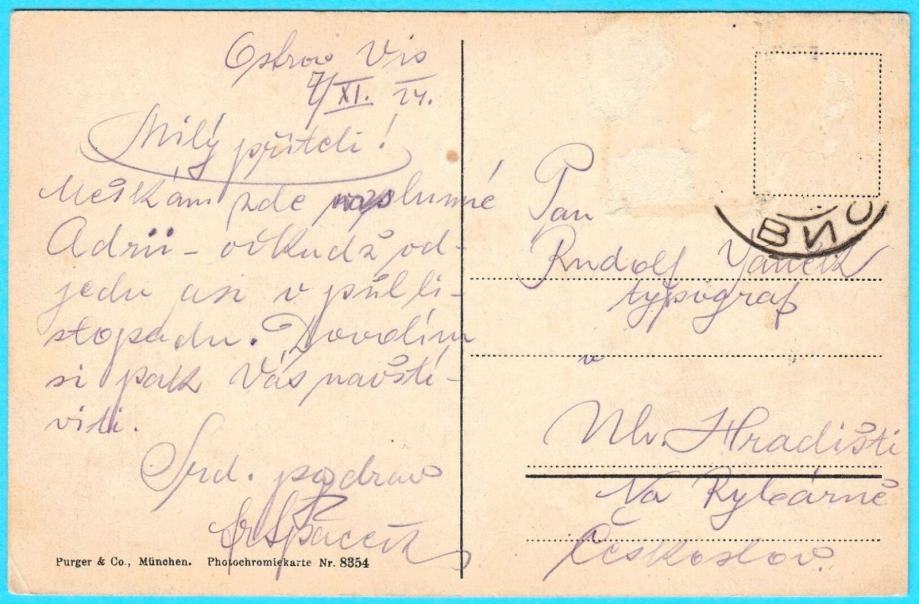 Ostrov Vis
7/XI. 24.
Milý příteli!
Meškám zde na slunné
Adrii - očkudž od-
jedu asi v půli li-
stopadu. Dovolím
si pak Vás navští-
viti.
Srd. pozdrav
Purger & Co., München. Photochromiekarte Nr. 8354
ВИС
Pan
Rudolf Vaněk
typograf
v
Uh. Hradišti
Na Rybárně
Českoslov.